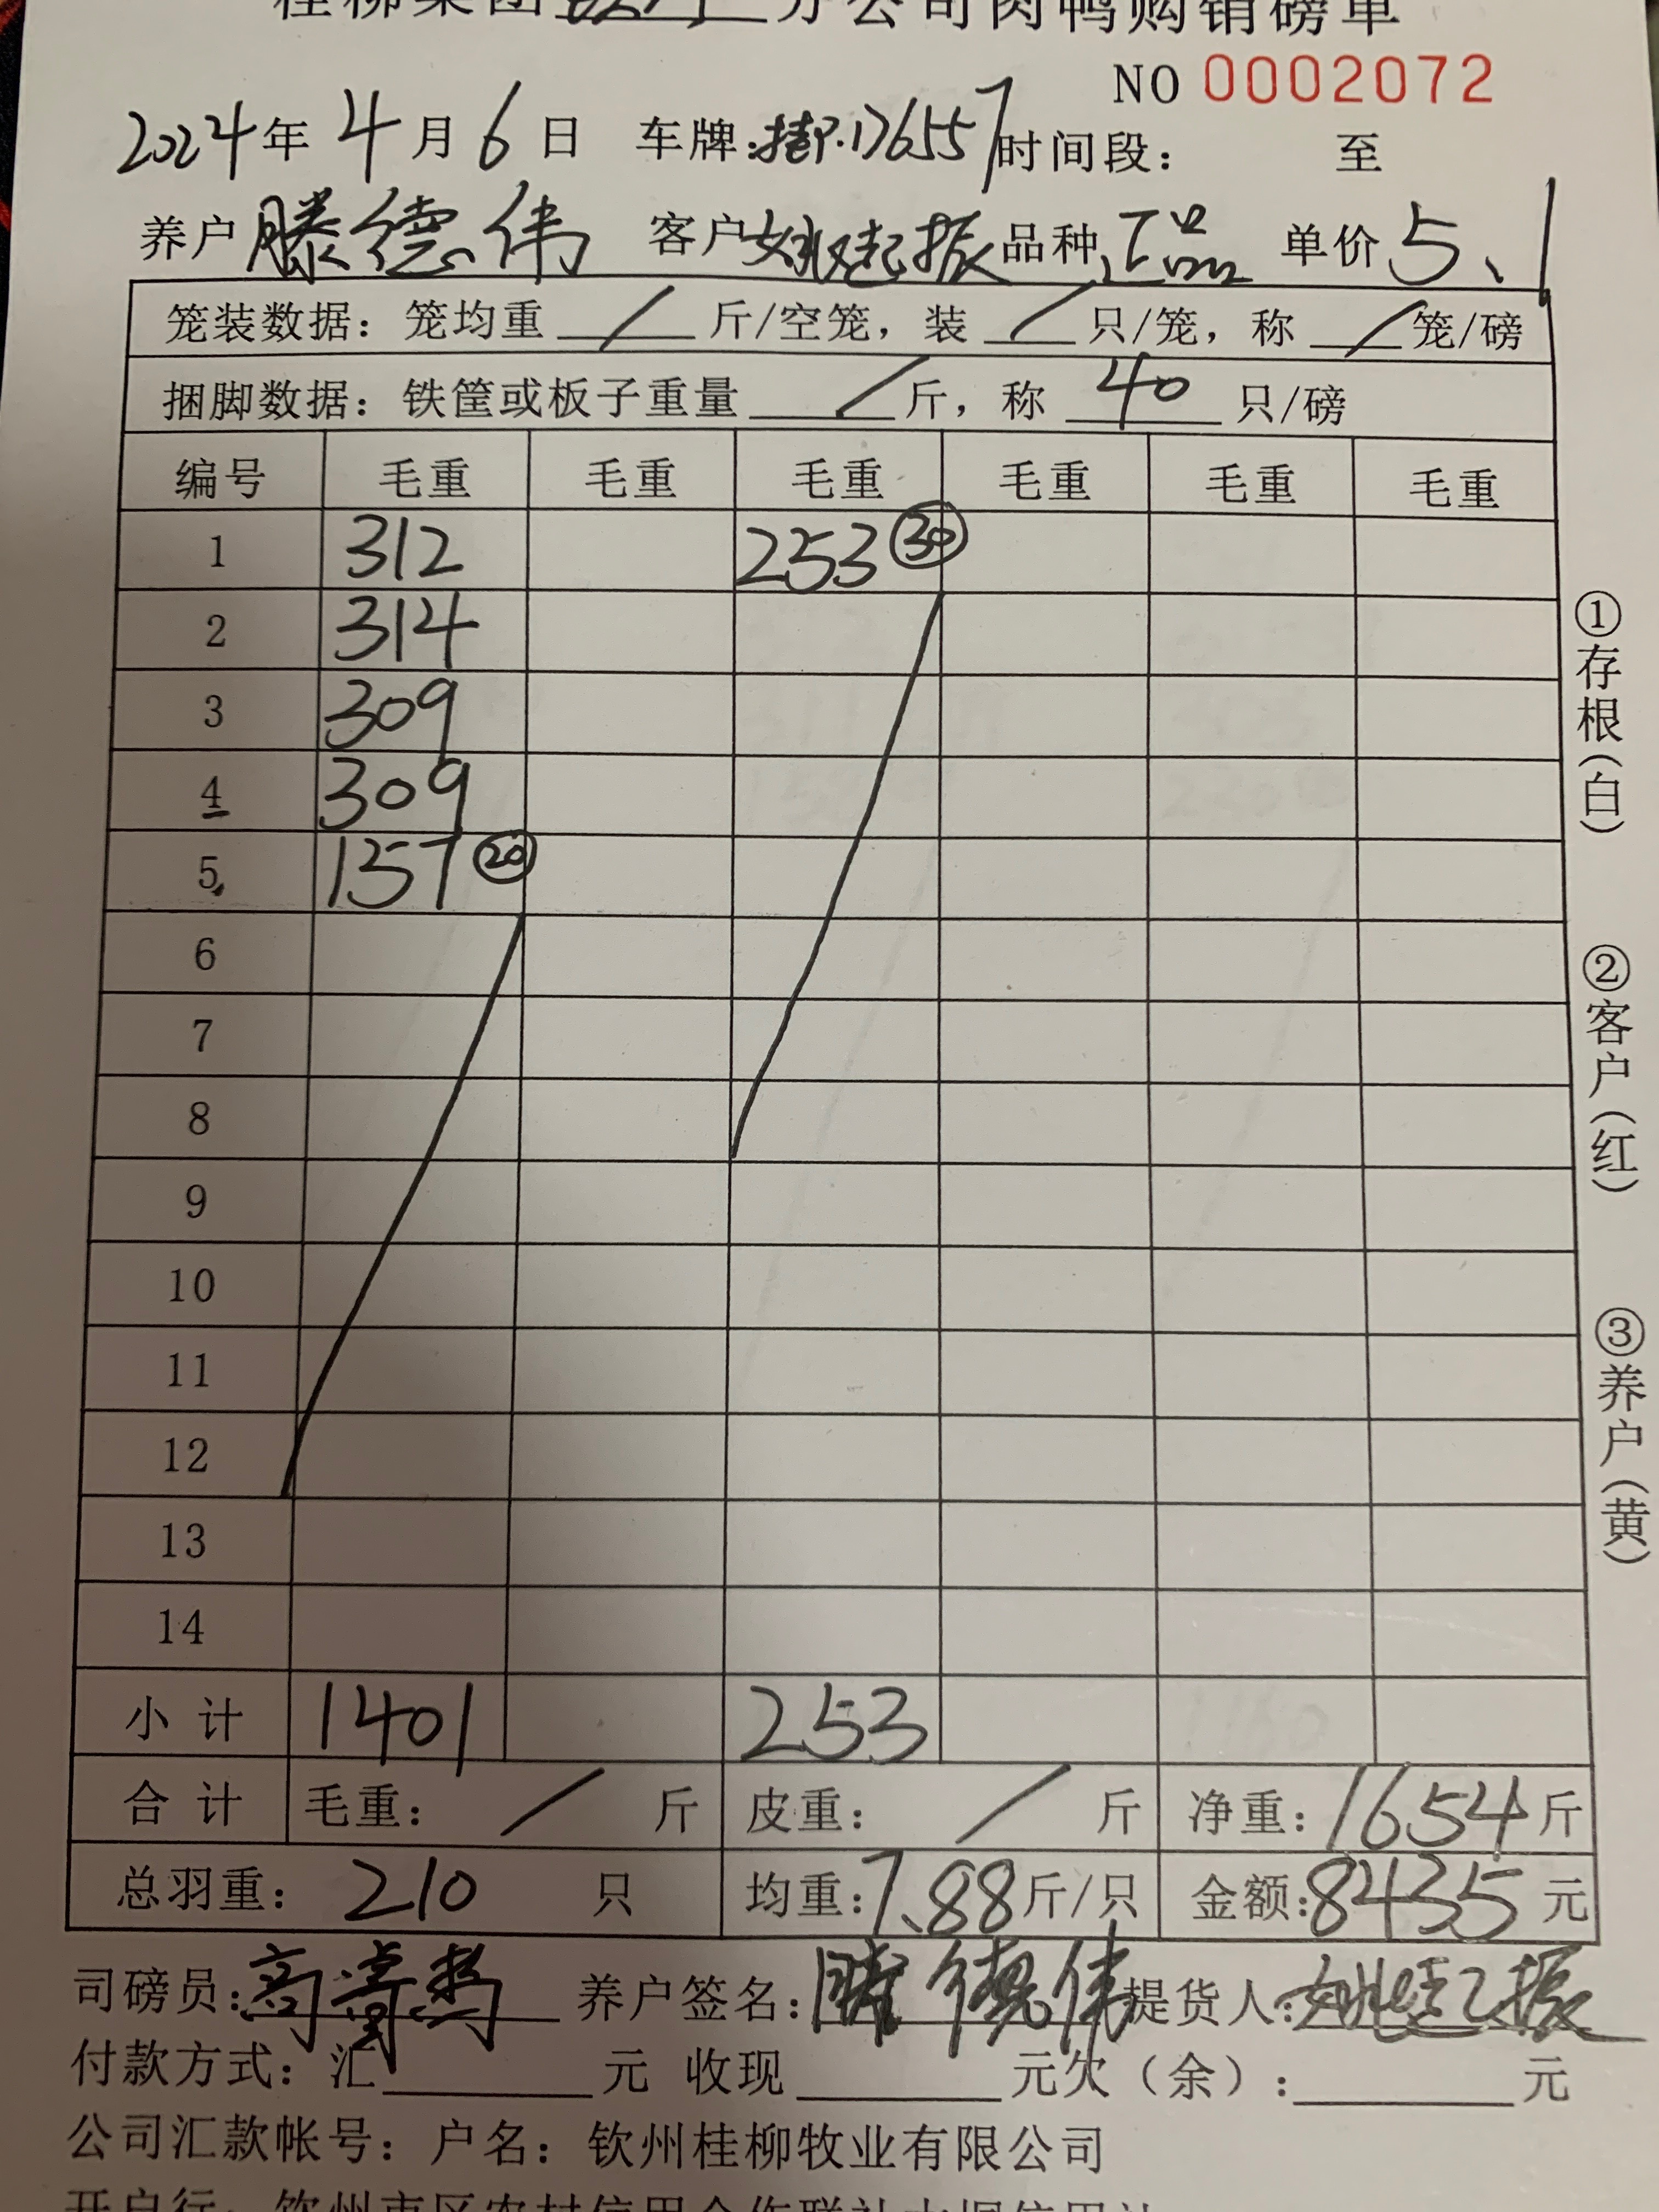 桂柳集团 分公司肉鸭购销磅单
NO 0002072
2024年 4月 6日 车牌: 176557 时间段: 至
养户 滕德伟 客户 姚起振 品种 正品 单价 5、1
笼装数据: 笼均重 / 斤/空笼, 装 / 只/笼, 称 / 笼/磅
捆脚数据: 铁筐或板子重量 / 斤, 称 40 只/磅
编号 毛重 毛重 毛重 毛重 毛重 毛重
1 312 253 ㉚
2 314
3 309
4 309
5 157 ⑳
6
7
8
9
10
11
12
13
14
小计 1401 253
合计 毛重: / 斤 皮重: / 斤 净重: 1654 斤
总羽重: 210 只 均重: 7、88 斤/只 金额: 8435 元
司磅员: 高 养户签名: 滕德伟 提货人: 姚起振
付款方式: 汇 元 收现 元欠(余): 元
公司汇款帐号: 户名: 钦州桂柳牧业有限公司
开户行: 钦州市区农村信用合作联社大垌信用社
①存根(白)
②客户(红)
③养户(黄)